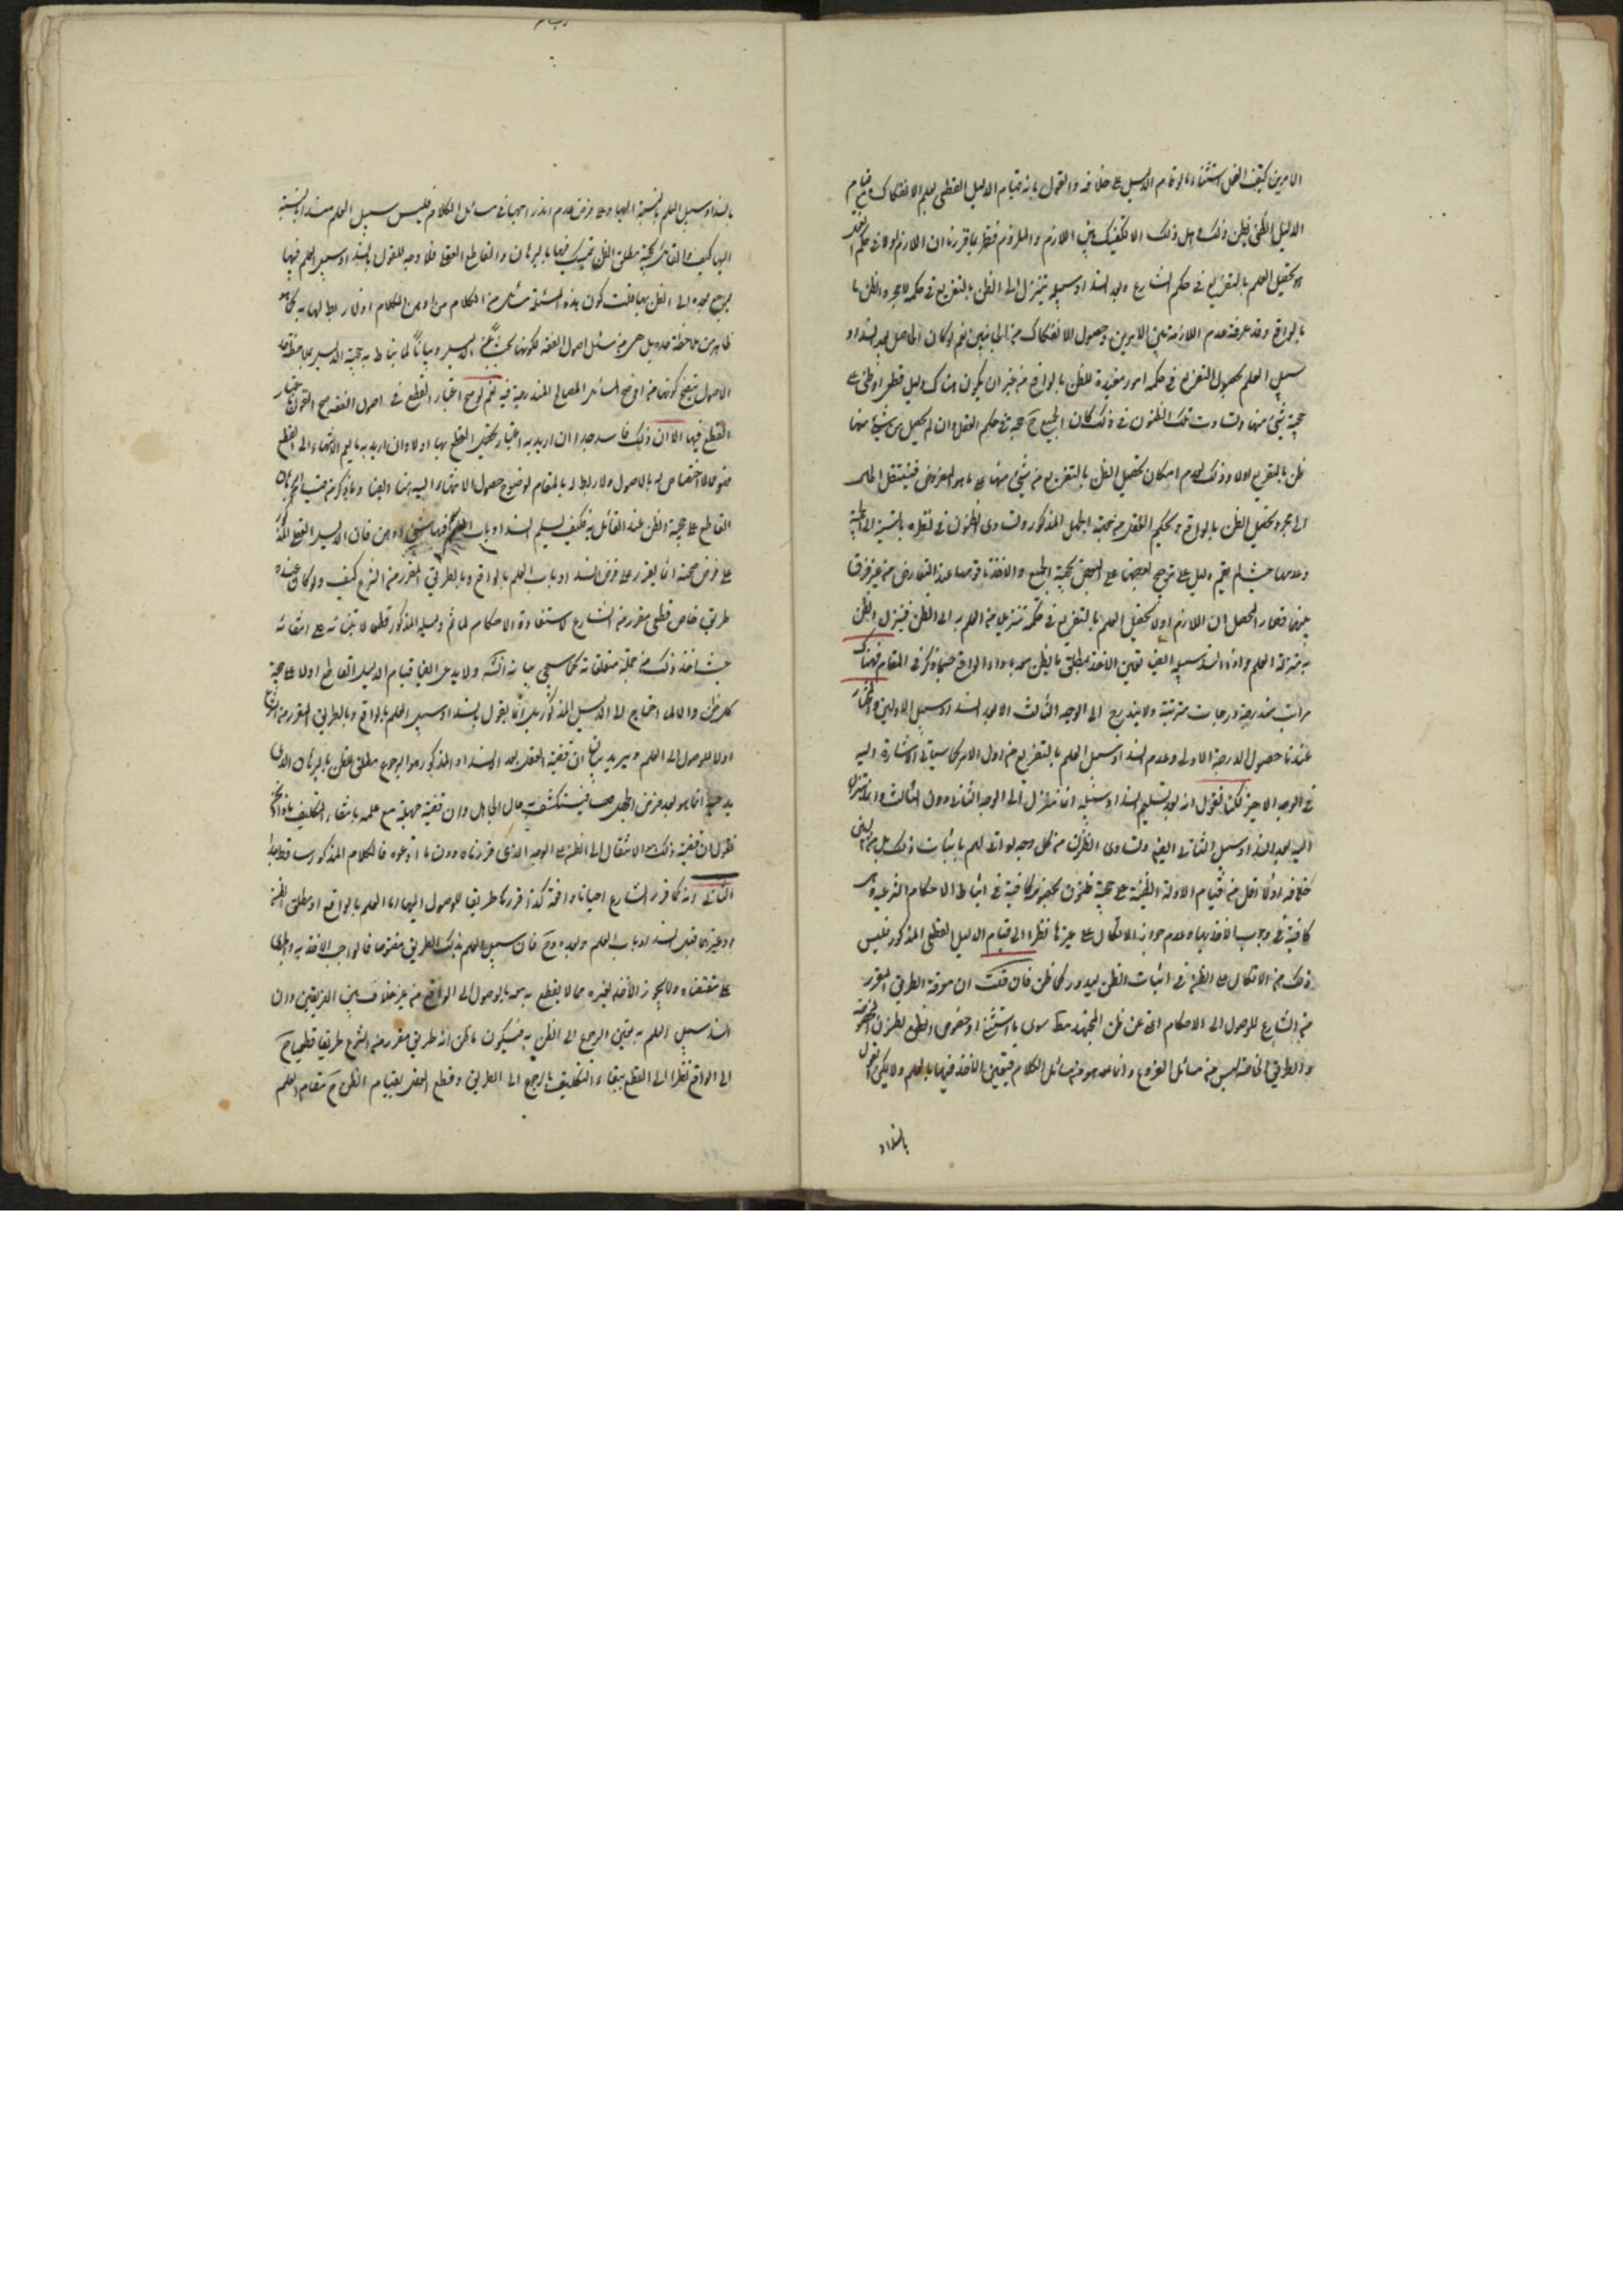 الامرين كيف يعقل استثناء ما لو قام الدليل على خلافه والقول بانه بقيام الدليل القطعي يعلم الانفكاك ومع قيام
الدليل الظني يظن ذلك وهل ذلك الا تفكيك بين اللازم والملزوم فظهر بما قررنا ان اللازم اولا في حكم العقل
هو تحصيل العلم بالتفريغ في حكم الشارع وبعد انسداد سبيله يتنزل الى الظن بالتفريغ في حكمه لا مجرد الظن با
بالواقع وقد عرفت عدم الملازمة بين الامرين وحصول الانفكاك من الجانبين نعم لو كان الحاصل بعد انسداد
سبيل العلم بحصول التفريغ في حكمه امور مفيدة للظن بالواقع من غير ان يكون هناك دليل قطعي او ظني على
حجية شيء منها وتساوت تلك الظنون في ذلك كان الجميع ح حجة في حكم العقل وان لم يحصل من شيء منها
ظن بالتفريغ اولا وذلك لعدم امكان تحصيل الظن بالتفريغ من شيء منها على ما هو المفروض فينتقل الحال
الى مجرد تحصيل الظن بالواقع ويحكم العقل من جهة الجهل المذكور وتساوي الظنون في نظره بالنسبة الى الحجية
وعدمها حيث لم يقم دليل على ترجيح بعضها على البعض بحجية الجميع والاخذ باقويها عند التعارض من غير فرق
بينها فصار المحصل ان اللازم اولا تحصيل العلم بالتفريغ في حكمه تنزيل من العلم به الى الظن فينزل الظن
به منزلة العلم واذا انسد سبيله ايضا تعين الاخذ بمطلق ما يظن معه باداء الواقع حسبما ذكر في المقام فهناك
مراتب متدرجة ودرجات مترتبة ولا يتدرج الى الوجه الثالث الا بعد انسداد سبيل الاولين والمختار
عندنا حصول الدرجة الاولى وعدم انسداد سبيل العلم بالتفريغ من اول الامر كما سياتي الاشارة اليه
في الوجه الاخير لكنا نقول انه بعد تسليم انسداد سبيله انما نتنزل الى الوجه الثاني دون الثالث وانما نتنزل
اليه بعد انسداد سبيل الثاني ايضا وتساوي الظنون من كل وجه لو اتى لهم باثبات ذلك بل من البين
خلافه اولا اقل من قيام الادلة الظنية على حجية ظنون مخصوصة كافية في استنباط الاحكام الشرعية وهي
كافية في وجوب الاخذ بها وعدم جواز الاتكال على غيرها نظرا الى قيام الدليل القطعي المذكور فليس
ذلك من الاتكال على الظن في اثبات الظن ليدور كما ظن فان قلت ان معرفة الطريق المقرر
من الشارع للوصول الى الاحكام اعني عن ظن المجتهد مط سوى ما استثنى او خصوص بعض الظنون المخصوصة
والطرق الخاصة ليس من مسائل الفروع وانما هو من مسائل الكلام فيتعين الاخذ فيها بالعلم ولا يمكن القول
بانسداد
بانسداد سبيل العلم بالنسبة اليها وعلى فرض عدم اندراجها في مسائل الكلام فليس سبيل العلم منسدا بالنسبة
اليها كيف والقائل بحجية مطلق الظن يتمسك فيها بالبرهان والقاطع العقلي فلا وجه للقول بانسداد سبيل العلم فيها
ليرجع بعده الى الظن بها قلت كون هذه المسئلة من مسائل الكلام من اوهن الكلام اذ لا ربط لها به كما هو
ظاهر من ملاحظة حده بل هي من مسائل اصول الفقه لكونها بحثا عن الدليل وبيانا لما يناط به حجية الدليل بملاحظة حد
الاصول يتضح كونها من اوضح المسائل المندرجة فيه نعم لو صح اعتبار القطع في اصول الفقه صح القول باعتبار
القطع فيها الا ان ذلك فاسد جدا ان اريد به اعتبار تحصيل القطع بها اولا وان اريد به ما يعم الانتهاء الى القطع
فهو مما لا اختصاص له بالاصول ولا ربط له بالمقام لوضوح حصول الانتهاء اليه هنا ايضا وما ذكر من قيام البرهان
القاطع على حجية الظن عند القائل به فكيف يسلم انسداد باب العلم فيها او هن فان الدليل العقلي المذكور
على فرض صحته انما يقرر على فرض انسداد باب العلم بالواقع وبالطريق المقرر من الشرع كيف ولو كان عنده
طريق خاص قطعي مقرر من الشارع لاستفادة الاحكام لما تم دليله المذكور قطعا لابتنائه على انتفائه
حيث اخذ ذلك من جملة مقدماته كما سيجيء بيانه انشاء الله ولا يدعي ايضا قيام الدليل القاطع اولا على حجية
كل ظن والا لما احتاج الى الدليل المذكور بل انما يقول بانسداد سبيل العلم بالواقع وبالطريق المقرر من الشرع
اولا للوصول الى العلم ويريد بيان ان قضية العقل بعد الانسداد المذكور هو الرجوع مطلق الظن بالبرهان الذي
يدعيه انما هو بعد فرض الجهل فيستكشف به حال الجاهل وان قضية جهله مع علمه ببقاء التكليف ماذا ونحن
نقول ان قضية ذلك هو الانتقال الى الظن على الوجه الذي قررناه دون ما ادعوه فالكلام المذكور ساقط جدا
الثاني انه كما قرر الشارع احكاما واقعية كذا قرر طريقا للوصول اليها اما العلم بالواقع او مطلق الظن
او غيرهما قبل انسداد باب العلم وبعده وح فان كان سبيل العلم بذلك الطريق مفتوحا فالواجب الاخذ به والجري
على مقتضاه ولا يجوز الاخذ بغيره مما لا يقطع معه بالوصول الى الواقع من غير خلاف بين الفريقين وان
انسد سبيل العلم به تعين الرجوع الى الظن به فيكون ما ظن انه طريق مقرر من الشرع طريقا قطعيا ح
الى الواقع نظرا الى القطع ببقاء التكليف بالرجوع الى الطريق وقطع العقل بقيام الظن ح مقام العلم